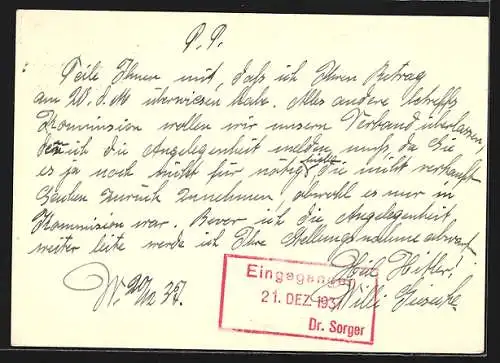 P. P.
Teile Ihnen mit, daß ich Ihren Betrag
am 20. d. M. überwiesen habe. Alles andere betreffs
Kommission wollen wir unserm Verband überlassen,
dem ich die Angelegenheit melden muß, da Sie
es ja noch nicht für nötig finden die nicht verkauften
Sachen zurück zunehmen, obwohl es nur in
Kommission war. Bevor ich die Angelegenheit
weiter leite werde ich Ihre Stellungsnahme abwarten
Heil Hitler!
W. 20/12 37. Willi
Eingegangen
21. DEZ. 1937
Dr. Sorger